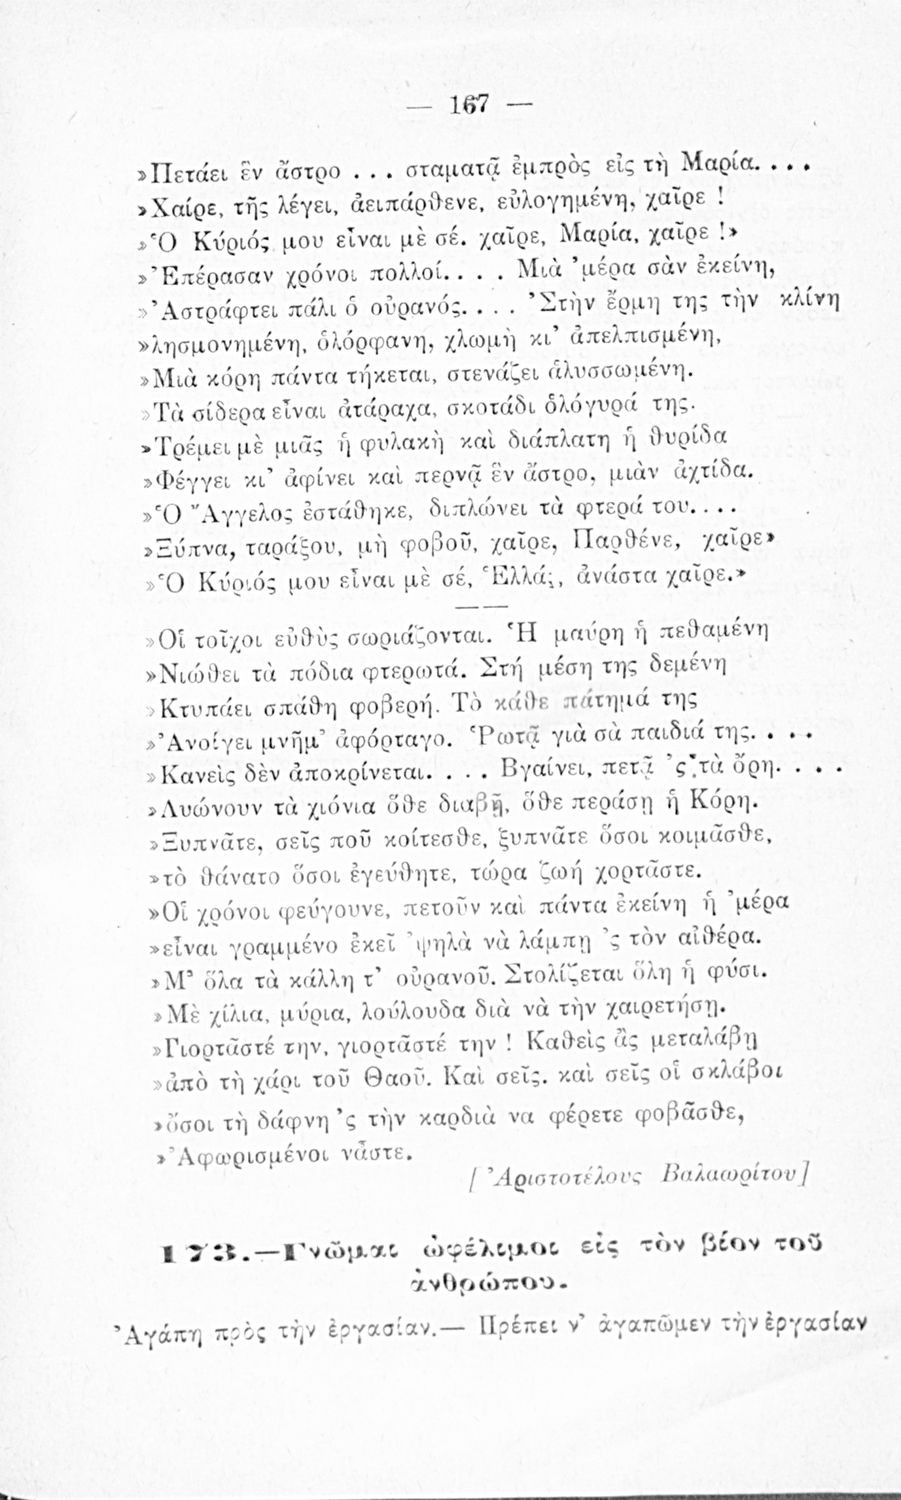 — 167 —
»Πετάει ἓν ἄστρο . . . σταματᾷ ἐμπρὸς εἰς τὴ Μαρία. . . .
»Χαίρε, τῆς λέγει, ἀειπάρθενε, εὐλογημένη, χαῖρε !
»Ὁ Κύριός μου εἶναι μὲ σέ. χαῖρε, Μαρία, χαῖρε !»
»Ἐπέρασαν χρόνοι πολλοί. . . . Μιὰ ’μέρα σὰν ἐκείνη,
»Ἀστράφτει πάλι ὁ οὐρανός. . . . Ἐτὴν ἔρμη της τὴν κλίνη
»λησμονημένη, ὁλόρφανη, χλωμὴ κι’ ἀπελπισμένη,
»Μιὰ κόρη πάντα τήκεται, στενάζει ἁλυσσωμένη.
»Τὰ σίδερα εἶναι ἀτάραχα, σκοτάδι ὁλόγυρά της.
»Τρέμει μὲ μιᾶς ἡ φυλακὴ καὶ διάπλατη ἡ θυρίδα
»Φέγγει κι’ ἀφίνει καὶ περνᾷ ἓν ἄστρο, μιὰν ἀχτίδα.
»Ὁ Ἄγγελος ἐστάθηκε, διπλώνει τὰ φτερά του. . . .
»Ξύπνα, ταράξου, μὴ φοβοῦ, χαῖρε, Παρθένε, χαῖρε»
»Ὁ Κύριός μου εἶναι μὲ σέ, Ἑλλάς, ἀνάστα χαῖρε.»
»Οἱ τοῖχοι εὐθὺς σωριάζονται. Ἡ μαύρη ἡ πεθαμένη
»Νιώθει τὰ πόδια φτερωτά. Στή μέση της δεμένη
»Κτυπάει σπάθη φοβερή. Τὸ κάθε πάτημά της
»Ἀνοίγει μνῆμ’ ἀφόρταγο. Ῥωτᾷ γιὰ σὰ παιδιά της. . . .
»Κανεὶς δὲν ἀποκρίνεται. . . . Βγαίνει, πετᾷ ’ς τὰ ὄρη. . . .
»Λυώνουν τὰ χιόνια ὅθε διαβῇ, ὅθε περάσῃ ἡ Κόρη.
»Ξυπνᾶτε, σεῖς ποῦ κοίτεσθε, ξυπνᾶτε ὅσοι κοιμᾶσθε,
»τὸ θάνατο ὅσοι ἐγεύθητε, τώρα ζωή χορτᾶστε.
»Οἱ χρόνοι φεύγουνε, πετοῦν καὶ πάντα ἐκείνη ἡ ’μέρα
»εἶναι γραμμένο ἐκεῖ ’ψηλὰ νὰ λάμπῃ ’ς τὸν αἰθέρα.
»Μ’ ὅλα τὰ κάλλη τ’ οὐρανοῦ. Στολίζεται ὅλη ἡ φύσι.
»Μὲ χίλια, μύρια, λούλουδα διὰ νὰ τὴν χαιρετήσῃ.
»Γιορτᾶστέ την, γιορτᾶστέ την ! Καθεὶς ἂς μεταλάβῃ
»ἀπὸ τὴ χάρι τοῦ Θαοῦ. Καὶ σεῖς. καὶ σεῖς οἱ σκλάβοι
»ὅσοι τὴ δάφνη ’ς τὴν καρδιὰ να φέρετε φοβᾶσθε,
»Ἀφωρισμένοι νἆστε.
[Ἀριστοτέλους Βαλαωρίτου]
173.—Γνῶμαι ὠφέλιμοι εἰς τὸν βίον τοῦ
ἀνθρώπου.
Ἀγάπη πρὸς τὴν ἐργασίαν.— Πρέπει ν’ ἀγαπῶμεν τὴν ἐργασίαν